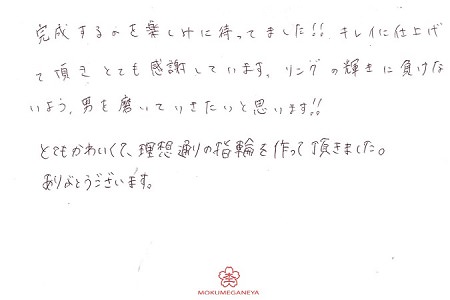 完成するのを楽しみに待ってました!! キレイに仕上げ
て頂きとても感謝しています。リングの輝きに負けな
いよう、男を磨いていきたいと思います!!
とてもかわいくて、理想通りの指輪を作って頂きました。
ありがとうございます。
MOKUMEGANEYA